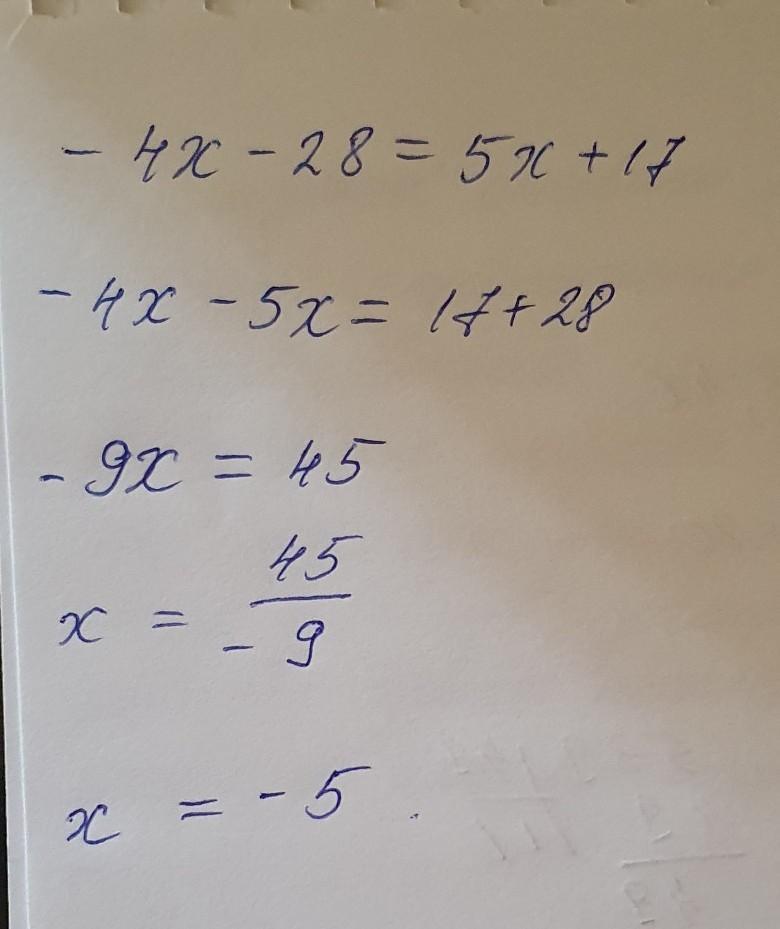 - 4x - 28 = 5x + 17
- 4x - 5x = 17 + 28
- 9x = 45
x = 45 / - 9
x = - 5 .